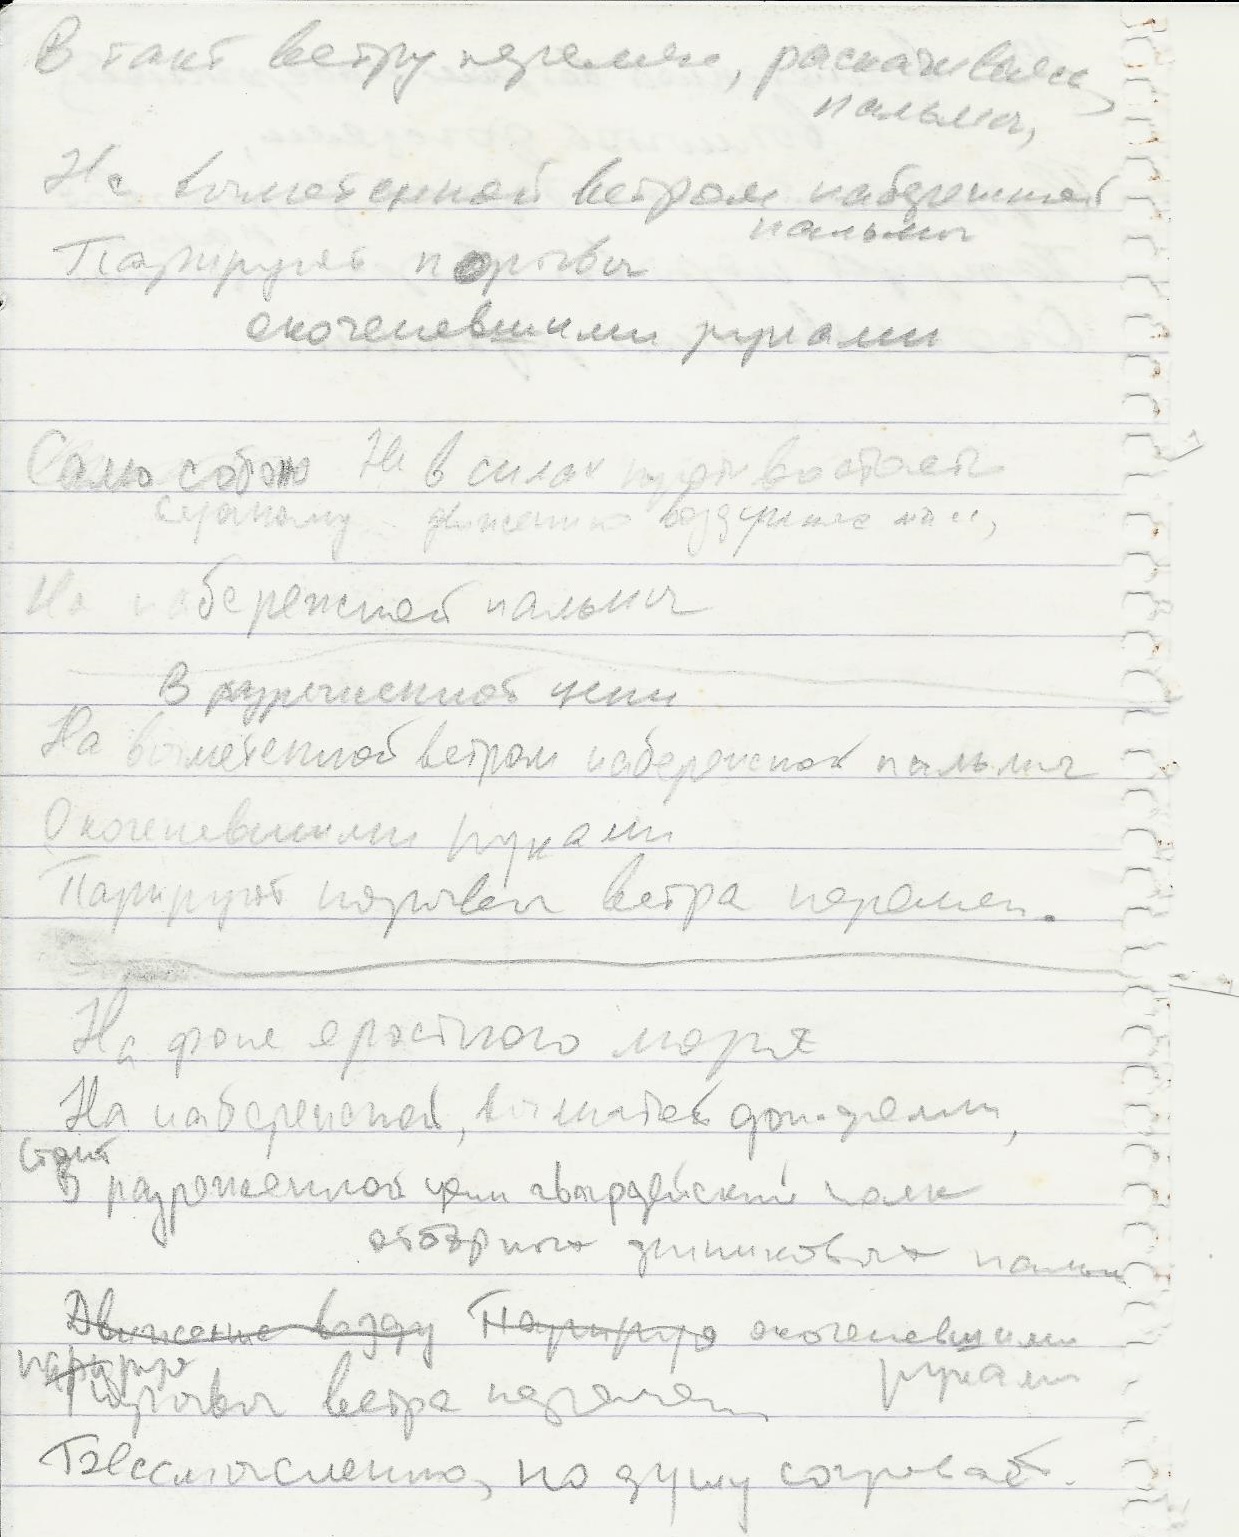 В такт ветру перемен, раскачиваясь,
пальмы,
На выметенной ветром набережной
пальмы
Парируют порывы
окоченевшими руками
Само собою Не в силах противостоять
движению воздушных масс,
На набережной пальмы
В разреженной цепи
На выметенной ветром набережной пальмы
Окоченевшими руками
Парируют порывы ветра перемен.
На фоне яростного моря
На набережной, вымытой дождями,
стоит
В разреженной цепи гвардейский полк
отборных финиковых пальм
Движение возду Парируя окоченевшими
парируя руками
порывы ветра перемен
Бессмысленно, но душу согревает.